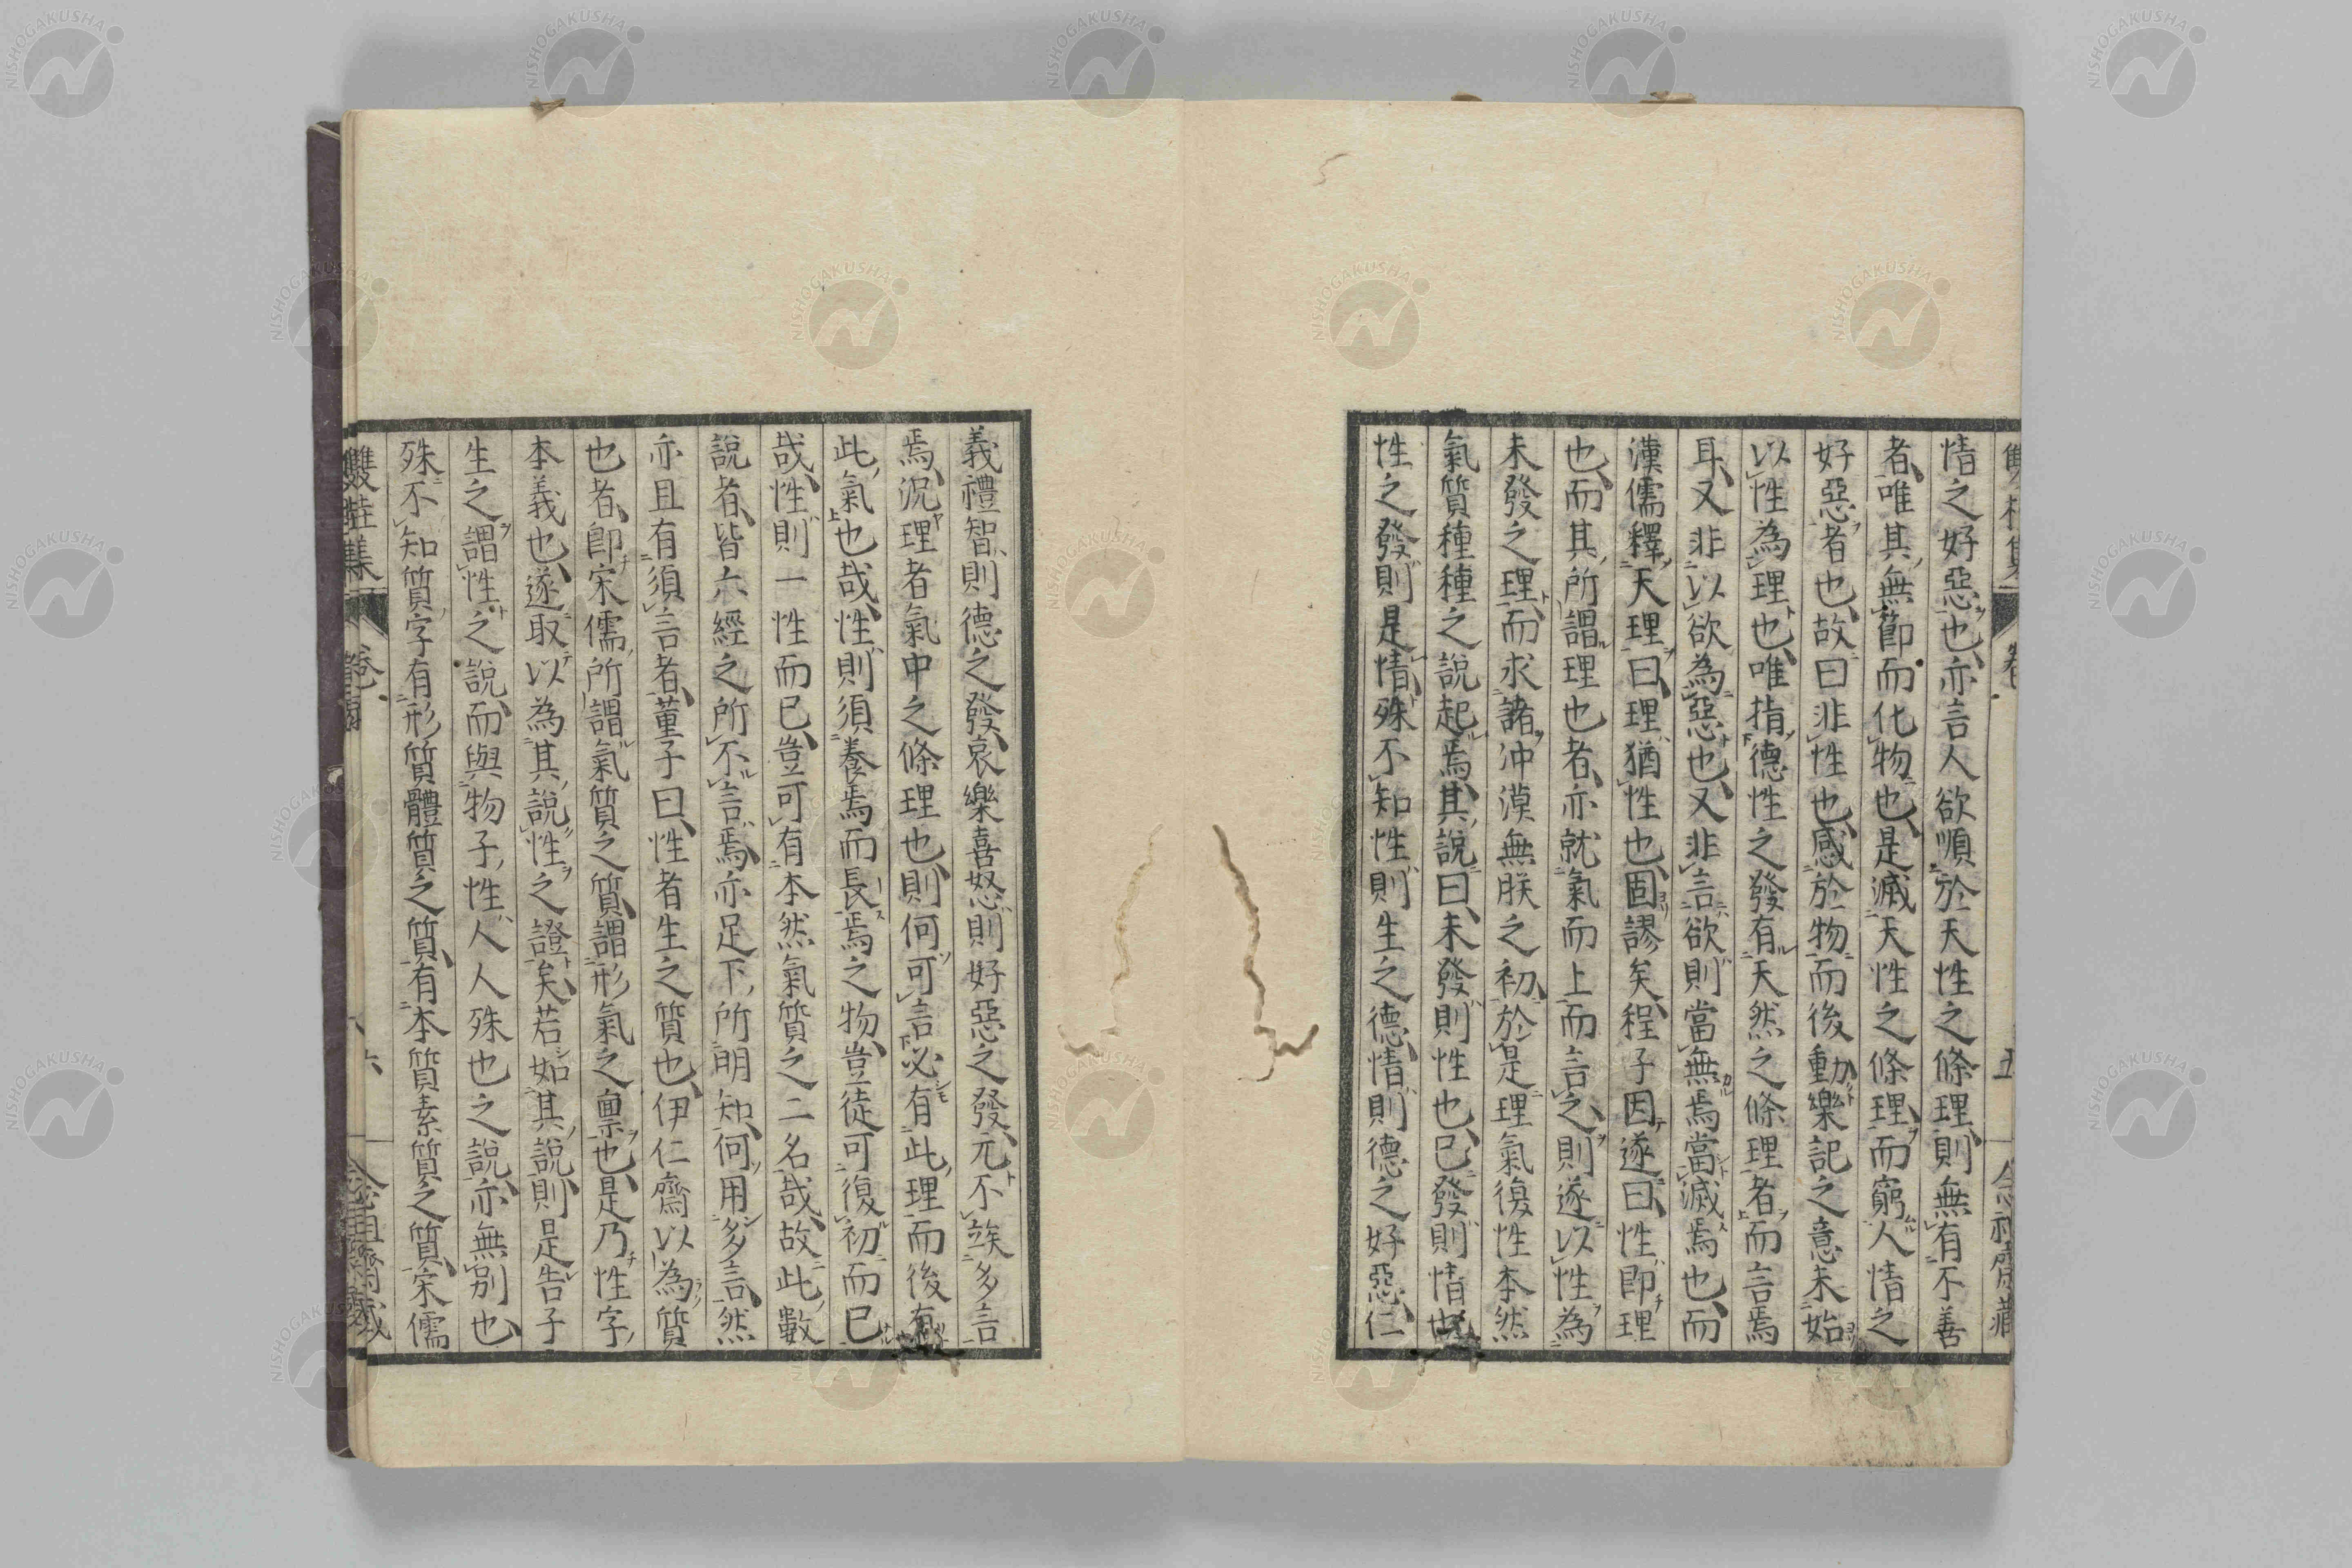 情之好惡也亦言人欲順於天性之條理則無有不善
者唯其無節而化物也是滅天性之條理而窮人情之
好惡者也故曰非性也感於物而後動樂記之意未始
以性為理也唯指德性之發有天然之條理者而言焉
耳又非以欲為惡也又非言欲則當無焉當滅焉也而
漢儒釋天理曰理猶性也固謬矣程子因遂曰性即理
也而其所謂理也者亦就氣而上而言之則遂以性為
未發之理而求諸沖漠無朕之初於是理氣復性本然
氣質種種之說起焉其說曰未發則性也已發則情也
性之發則是情殊不知性則生之德情則德之好惡仁
義禮智則德之發哀樂喜怒則好惡之發元不竢多言
焉況理者氣中之條理也則何可言必有此理而後有
此氣也哉性則須養焉而長焉之物豈徒可復初而已
哉性則一性而已豈可有本然氣質之二名哉故此數
說者皆六經之所不言焉亦足下所明知何用多言然
亦且有須言者董子曰性者生之質也伊仁齋以為質
也者即宋儒所謂氣質之質謂形氣之稟也是乃性字
本義也遂取以為其說性之證矣若如其說則是告子
生之謂性之說而與物子性人人殊也之說亦無別也
殊不知質字有形質體質之質有本質素質之質宋儒
雙桂集
卷
六
念祖齋藏
NISHOGAKUSHA